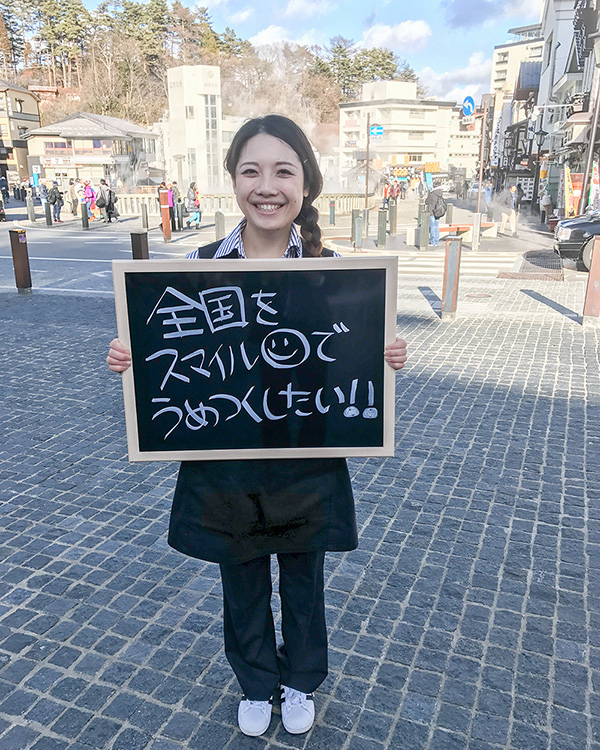 全国を
スマイル☺で
うめつくしたい!!